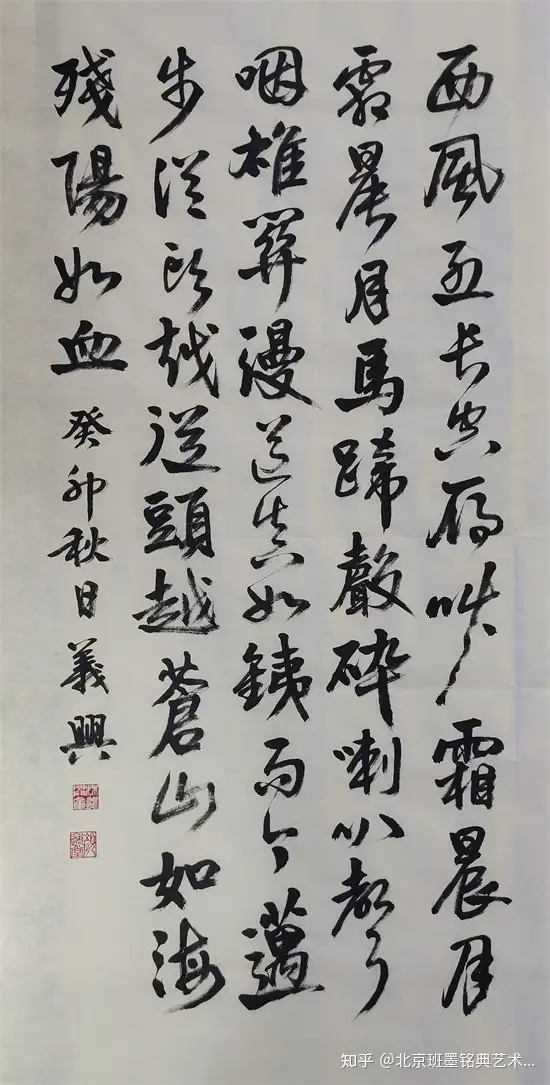 西風烈長空雁叫霜晨月
霜晨月馬蹄聲碎喇叭聲
咽雄關漫道真如銕而今邁
步從頭越從頭越蒼山如海
殘陽如血 癸卯秋日義興
知乎 @北京班墨铭典艺术...